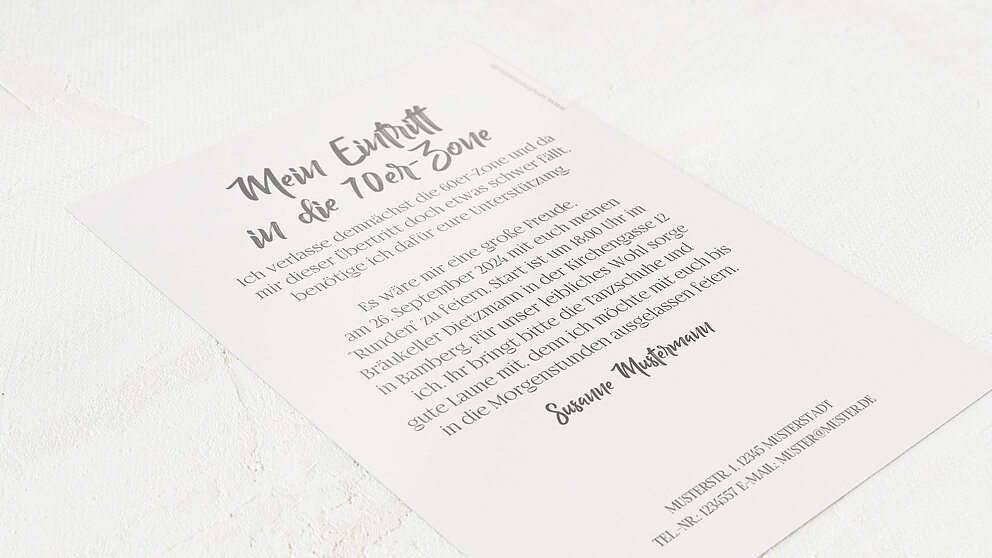 Mein Eintritt
in die 70er-Zone
Ich verlasse demnächst die 60er-Zone und da
mir dieser Übertritt doch etwas schwer fällt,
benötige ich dafür eure Unterstützung.
Es wäre mir eine große Freude,
am 26. September 2024 mit euch meinen
"Runden" zu feiern. Start ist um 18:00 Uhr im
Bräukeller Dietzmann in der Kirchengasse 12
in Bamberg. Für unser leibliches Wohl sorge
ich. Ihr bringt bitte die Tanzschuhe und
gute Laune mit, denn ich möchte mit euch bis
in die Morgenstunden ausgelassen feiern.
Susanne Mustermann
MUSTERSTR. 1, 12345 MUSTERSTADT
TEL.-NR.: 1234557 E-MAIL: MUSTER@MUSTER.DE